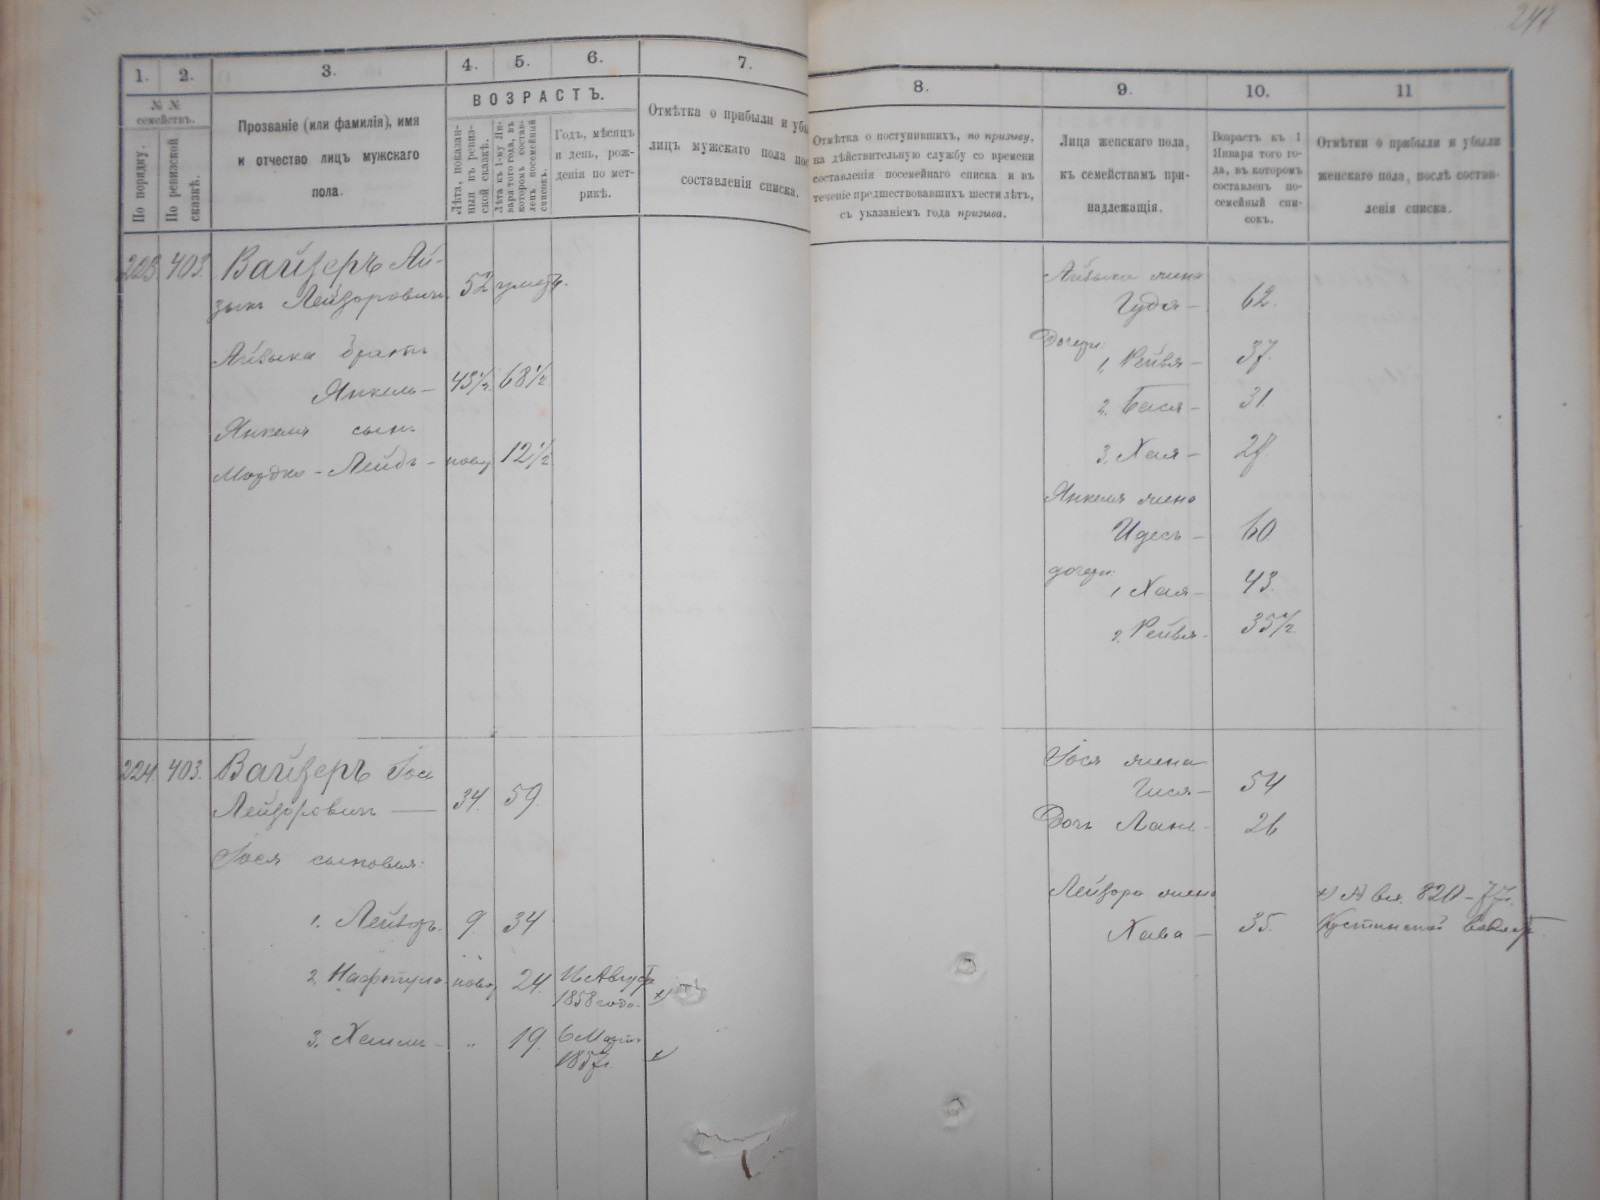 247
1.
2.
3.
4.
5.
6.
7.
8.
9.
10.
11
№ №
семействъ.
По порядку.
По ревизской
сказкѣ.
Прозваніе (или фамилія), имя
и отчество лицъ мужскаго
пола.
ВОЗРАСТЪ.
Лѣта, показан-
ныя въ ревиз-
ской сказкѣ.
Лѣта къ 1-му Ян-
варя того года, въ
которомъ состав-
ленъ посемейный
списокъ.
Годъ, мѣсяцъ
и день, рож-
денія по мет-
рикѣ.
Отмѣтка о прибыли и убы
лицъ мужскаго пола пос
составленія списка.
Отмѣтка о поступившихъ, по призыву,
на дѣйствительную службу со времени
составленія посемейнаго списка и въ
теченіе предшествовавшихъ шести лѣтъ,
съ указаніемъ года призыва.
Лица женскаго пола,
къ семействамъ при-
надлежащія.
Возрастъ къ 1
Января того го-
да, въ которомъ
составленъ по-
семейный спи-
сокъ.
Отмѣтки о прибыли и убыли
женскаго пола, послѣ состав-
ленія списка.
403. Вайзеръ Ай-
зыкъ Лейзоровичъ 52 умеръ.
Айзыка братъ
Янкель — 43½ 68½
Янкеля сынъ
Мордко-Лейбъ - новор 12½
Айзыка жена
Гудя — 62.
Дочери:
1, Рейзя — 37.
2. Бася — 31
3. Хая — 28
Янкеля жена
Идесъ — 60
дочери:
1 Хая — 43.
2. Рейзя - 35½
224. 403. Вайзеръ Іось
Лейзоровичъ — 34. 59.
Іося сыновья:
1. Лейзоръ. 9 34
2. Нафтула новор 24. 16 Августа
1858 года.
3. Хаимъ — " 19. 6 Март.
1857г.
Іося жена
Гися — 54
Дочь - 26
Лейзора жена
Хава — 35.
820-77г.